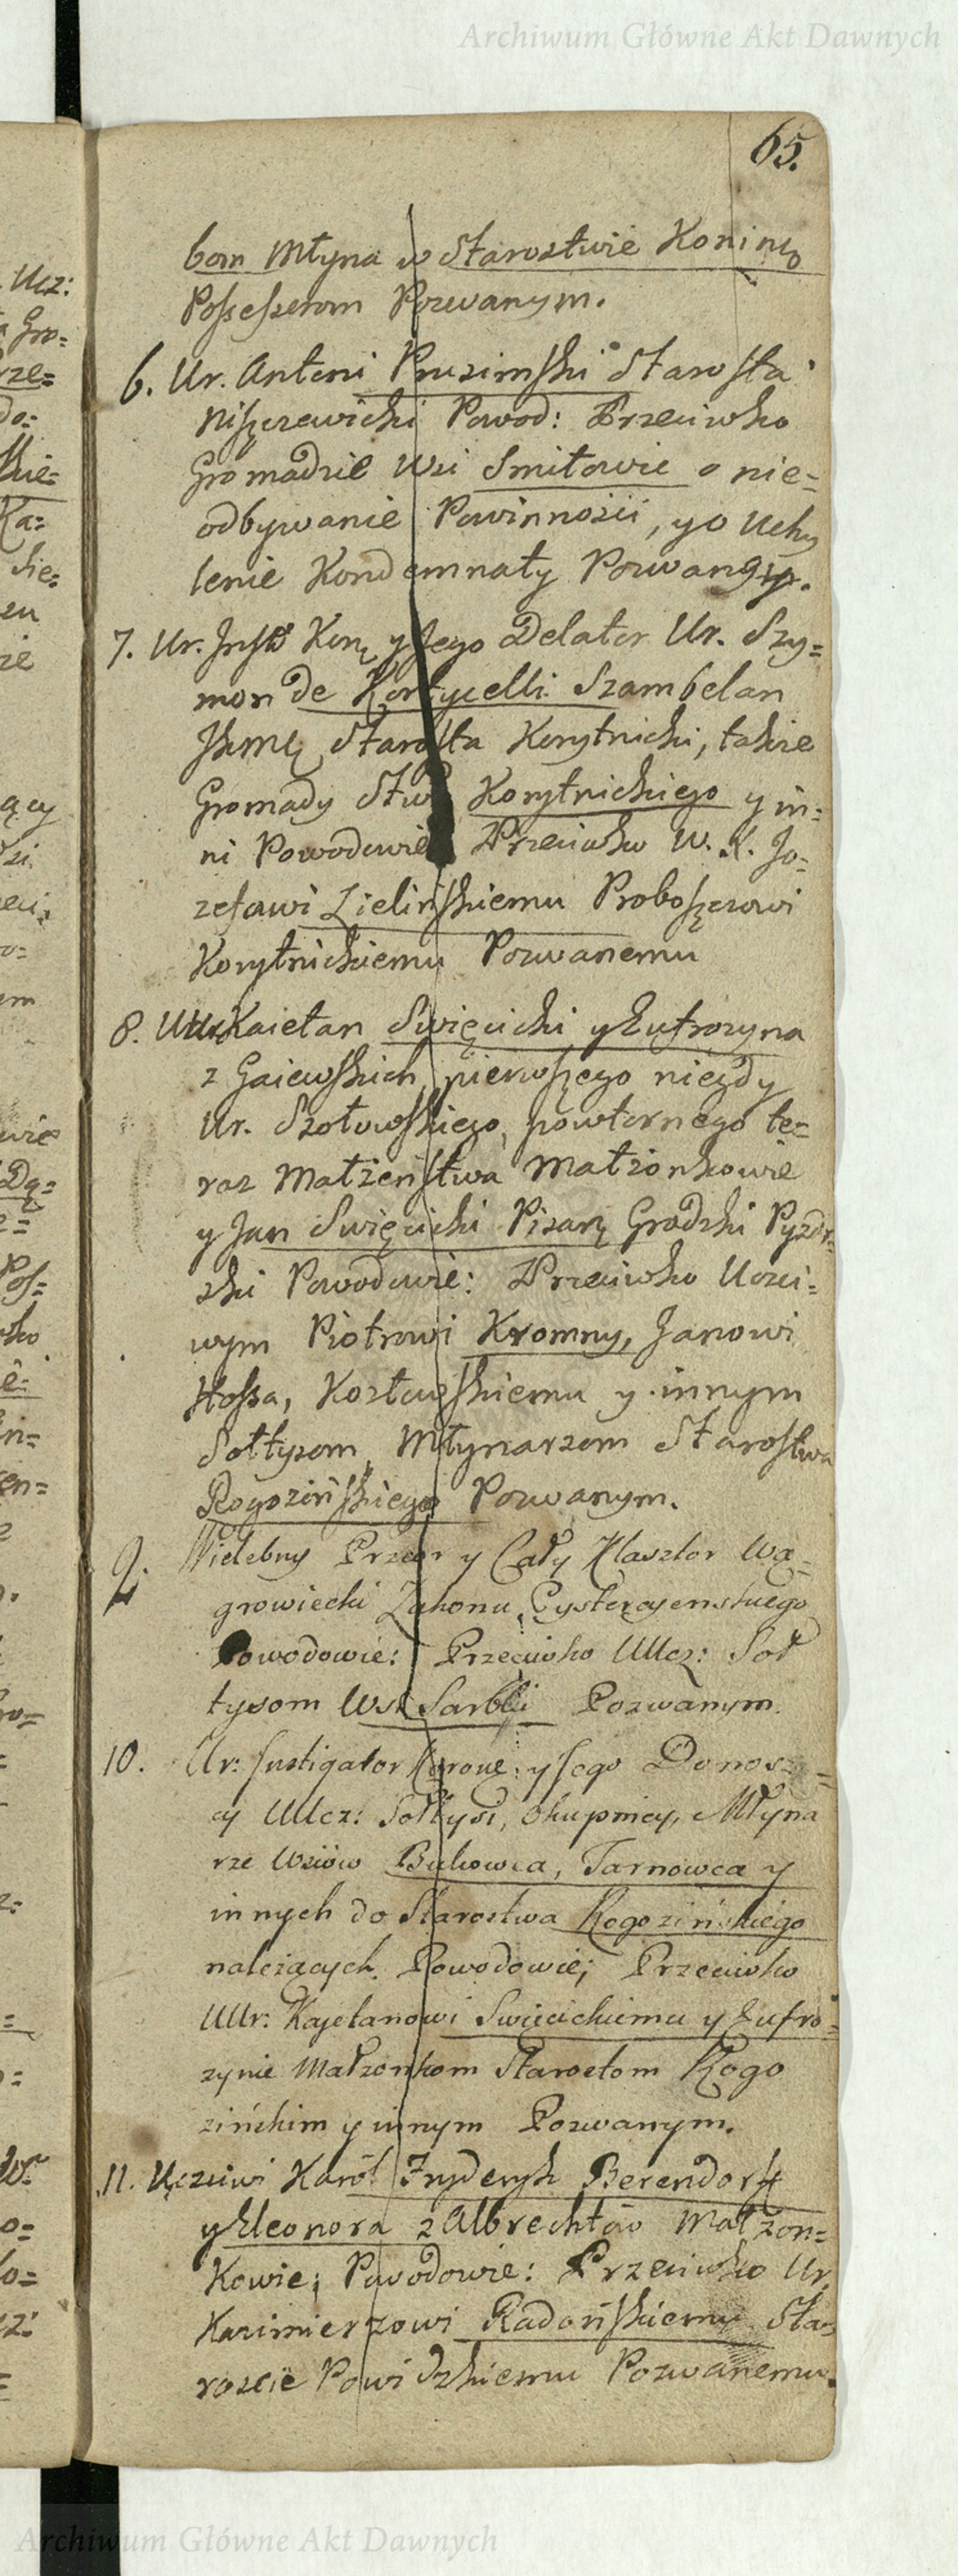 Archiwum Główne Akt Dawnych
65.
bom Młyna w Starostwie Koning
Possessorom Pozwanym.
6. Ur. Antoni Prusimski Starosta
Niszczewicki Powod: Przeciwko
Gromadzie Wsi Smiłowie o nie=
odbywanie Powinnosci, y o Uchy
lenie Kondemnaty Pozwaney.
7. Ur. Insti Kor: y Jego Delator Ur. Szy=
mon de Kortycelli Szambelan
JKMci Starosta Korytnicki, takze
Gromady Stwa Korytnickiego y in=
ni Powodowie Przeciwko W. X. Jo=
zefowi Zielińskiemu Proboszczowi
Korytnickiemu Pozwanemu
8. UUr Kaietan Swięcicki y Eufrozyna
z Gaiewskich pierwszego niegdy
Ur. Szołowskiego, powtornego te=
raz Małzeństwa Małzonkowie
y Jan Swięcicki Pisarz Grodzki Pyzdr=
ski Powodowie: Przeciwko Uczci=
wym Piotrowi Kromny, Janowi
Hossa, Kozłowskiemu y innym
Sołtysom, Młynarzom Starostwa
Rogozińskiego Pozwanym.
9. Wielebny Przeor y Cały Klasztor Wą=
growiecki Zakonu Cystercyenskiego
Powodowie: Przeciwko UUcz: Soł
tysom Wsi Sarbki Pozwanym.
10. Ur: Instigator Korong: y Jego Donosz=
cy UUcz: Sołtysi, Okupnicy, Młyna
rze Wsiów Bukowca, Tarnowca y
innych do Starostwa Rogozińskiego
nalezących. Powodowie; Przeciwko
UUr: Kajetanowi Swięcickiemu y Eufro=
zynie Małzonkom Starostom Rogo
zińskim y innym Pozwanym.
11. Uczciwi Karól Fryderyk Berendorff
y Eleonora z Albrechtów Małzon=
Kowie; Powodowie: Przeciwko Ur.
Kazimierzowi Radońskiemu Sta=
roscie Powidzkiemu Pozwanemu.
Archiwum Główne Akt Dawnych